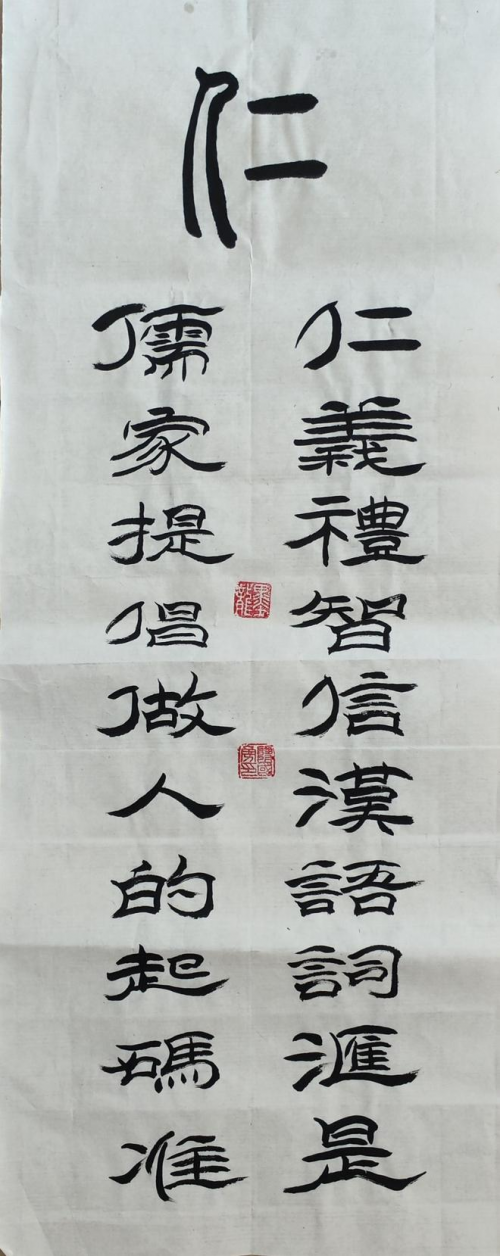 仁
仁義禮智信漢語詞滙是
儒家提倡做人的起碼准